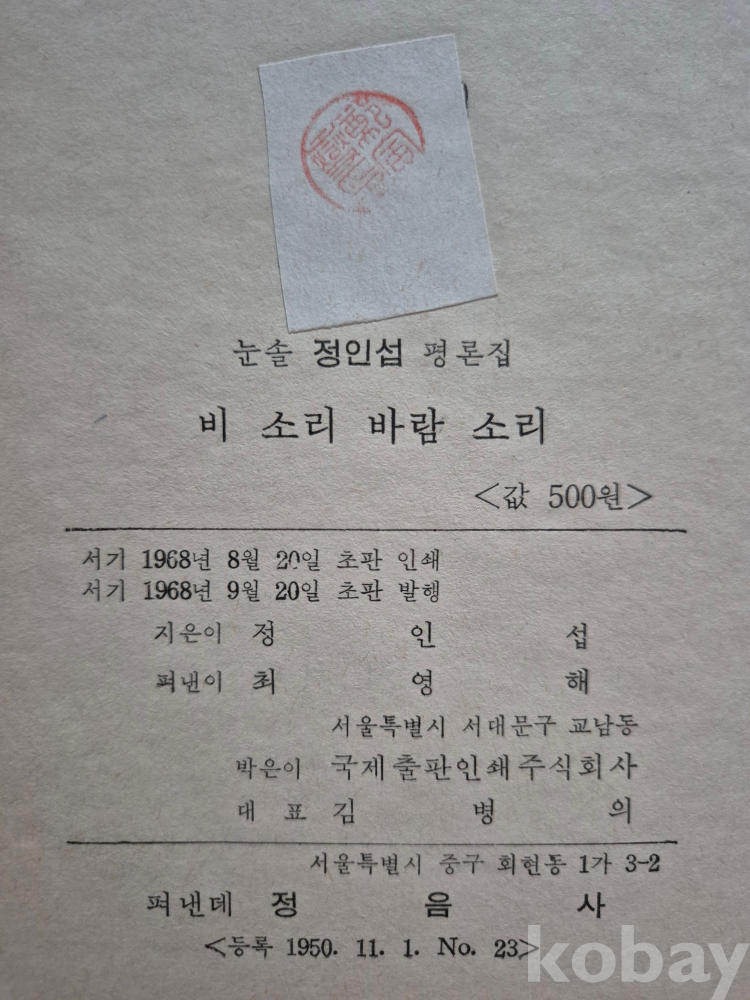 눈솔 정인섭 평론집
비 소리 바람 소리
<값 500원>
서기 1968년 8월 20일 초판 인쇄
서기 1968년 9월 20일 초판 발행
지은이 정 인 섭
펴낸이 최 영 해
서울특별시 서대문구 교남동
박은이 국제출판인쇄주식회사
대 표 김 병 의
서울특별시 중구 회현동 1가 3-2
펴낸데 정 음 사
<등록 1950. 11. 1. No. 23>
kobay